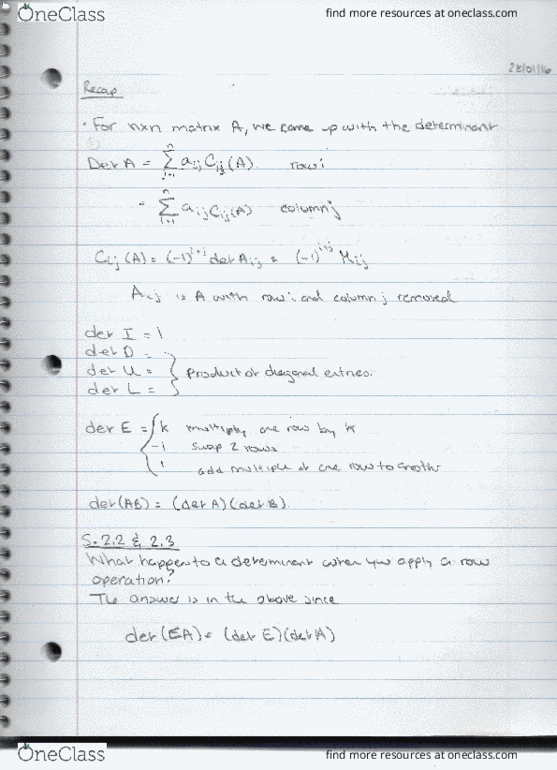 OneClass
find more resources at oneclass.com
28/01/16
Recap
· For nxn matrix A, we came up with the determinant
Det A = n∑j=1 aij Cij(A) row i
= n∑i=1 aij Cij(A) column j
Cij(A) = (-1)^i+j det Aij = (-1)^i+j Mij
Aij is A with row i and column j removed
det I = 1
det D =
det U = } product of diagonal entries.
det L =
det E = { k multiply one row by k
-1 swap 2 rows
1 add multiple of one row to another
det(AB) = (det A)(det B)
S. 2.2 & 2.3
What happens to a determinant when you apply a row
operation?
The answer is in the above since
det(EA) = (det E)(det A)
OneClass
find more resources at oneclass.com